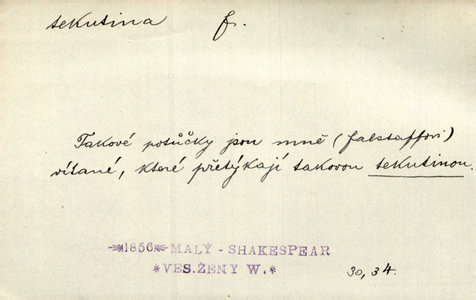 tekutina f.
Takové potůčky jsou mně (falstaffovi)
vítané, které přetýkají takovou tekutinou.
1856 MALÝ - SHAKESPEAR
*VES.ŽENY W.* 30, 34.